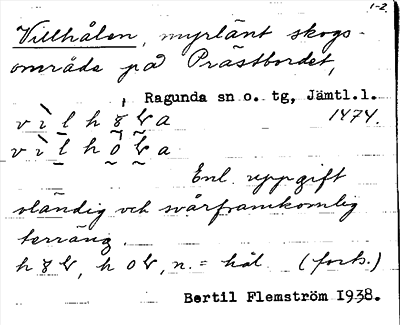 1-2.
Villhålen, myrlänt skogs-
område på Prästbordet,
Ragunda sn o. tg, Jämtl.l.
1474.
Enl. uppgift
oländig och svårframkomlig
terräng.
n. = hål. (forts.)
Bertil Flemström 1938.